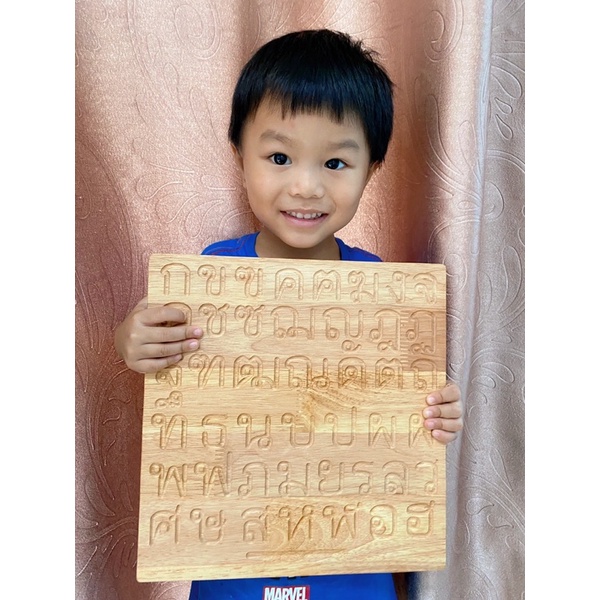 ก ข ฃ ค ฅ ฆ ง จ
ฉ ช ซ ฌ ญ ฎ ฏ
ฐ ฑ ฒ ณ ด ต ถ
ท ธ น บ ป ผ ฝ
พ ฟ ภ ม ย ร ล ว
ศ ษ ส ห ฬ อ ฮ
MARVEL